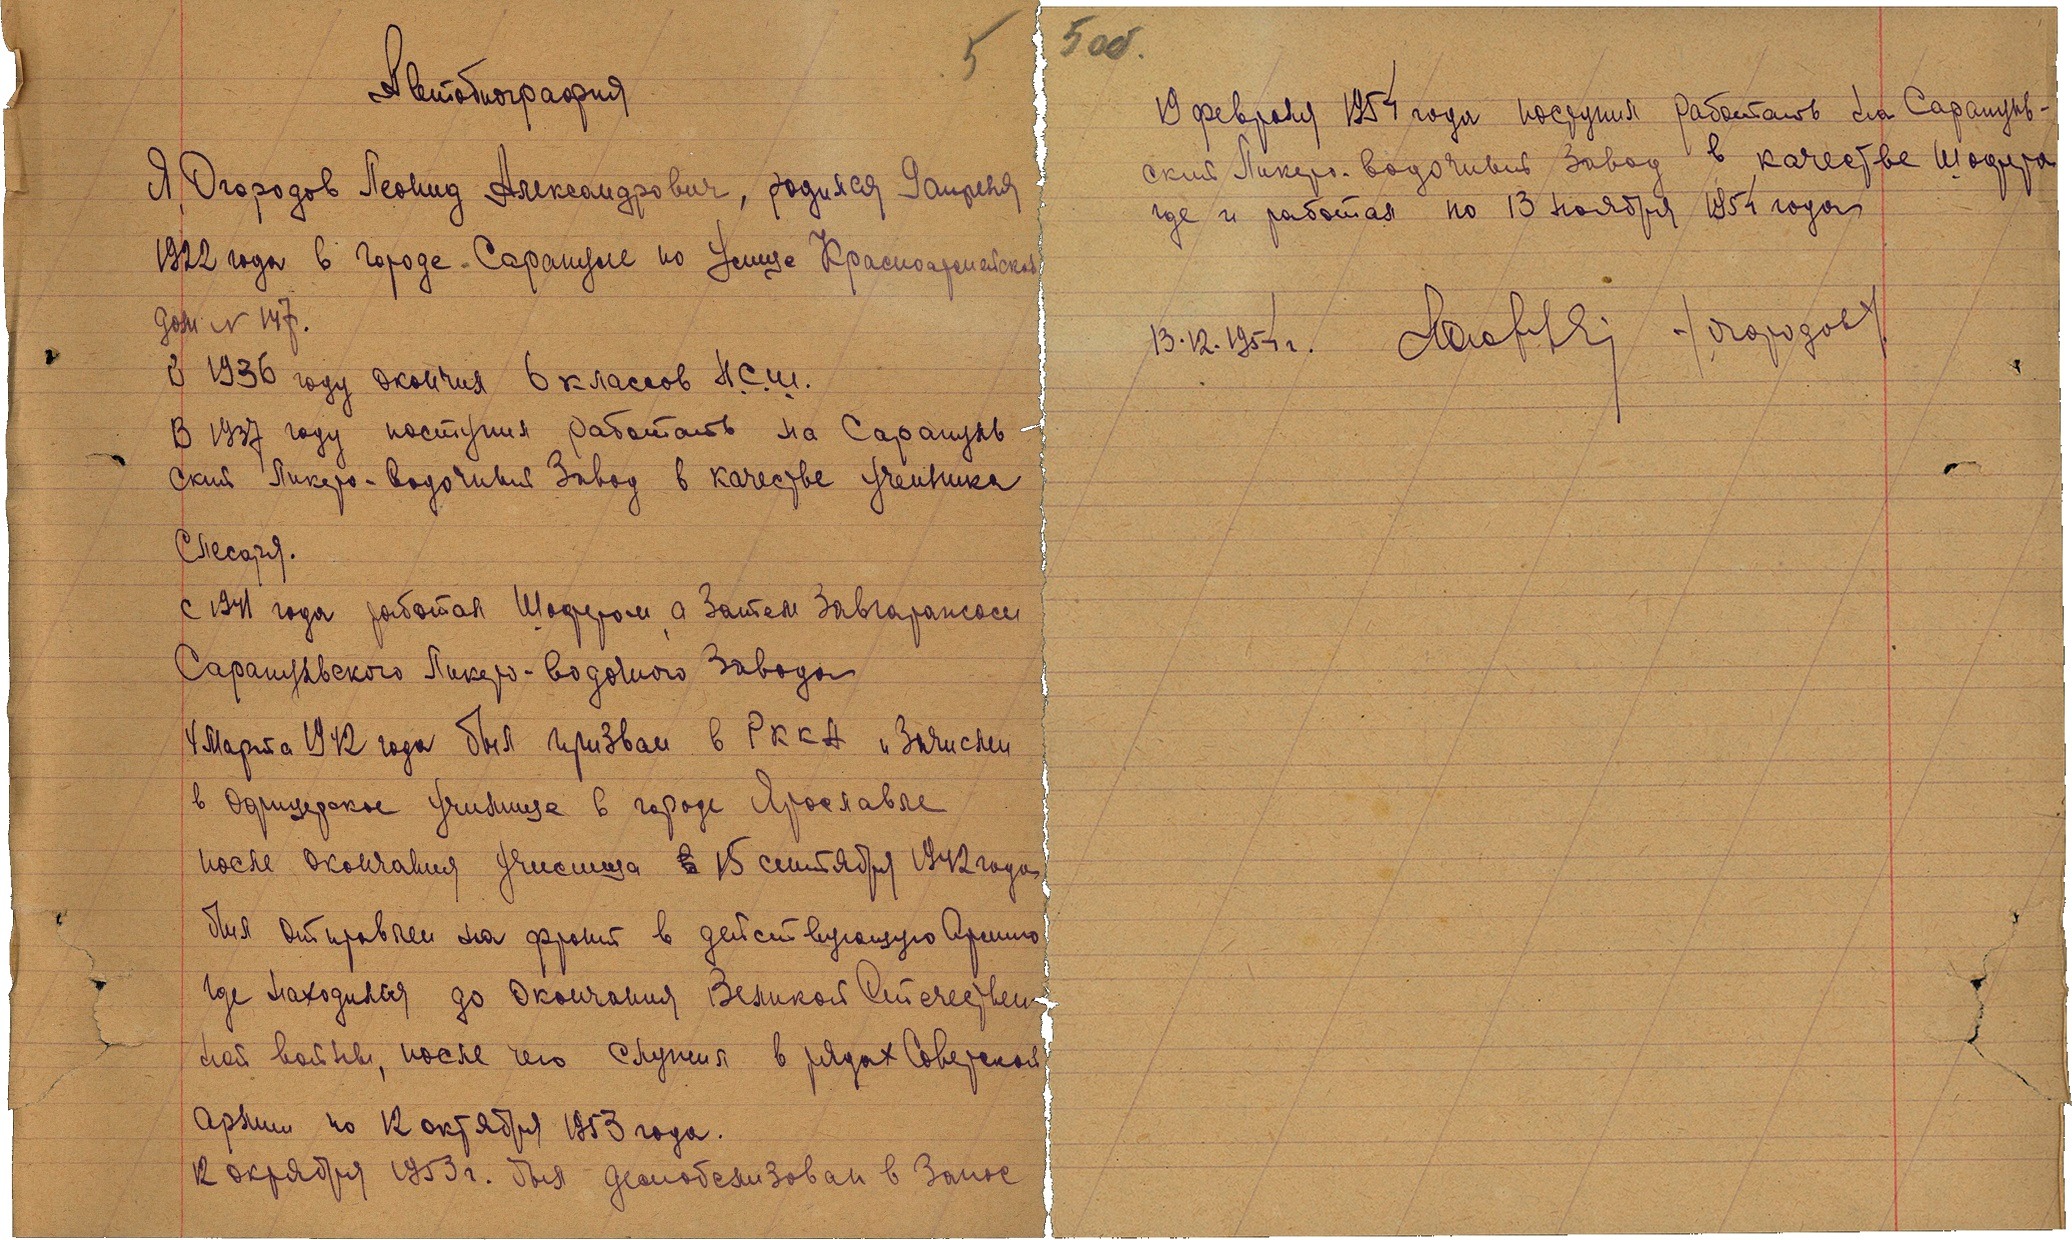 5
Автобиография
Я, Огородов Леонид Александрович, родился 9 апреля
1922 года в городе Сарапуле по улице Красноармейской
дом N 147.
В 1936 году окончил 6 классов Н.С.Ш.
В 1937 году поступил работать на Сарапуль-
ский Ликеро-водочный Завод в качестве ученика
Слесаря.
С 1941 года работал Шофером, а Затем Завгаражом
Сарапульского Ликеро-водочного Завода
4 Марта 1942 года был призван в РККА и Зачислен
в Офицерское училище в городе Ярославле
после окончания училища 15 сентября 1942 года
был отправлен на фронт в действующую Армию
где находился до окончания Великой Отечествен-
ной войны, после чего служил в рядах Советской
Армии по 12 октября 1953 года.
12 октября 1953 г. был демобелизован в Запас
5 об.
19 февраля 1954 года поступил работать на Сарапуль-
ский Ликеро-водочный Завод в качестве Шофера
где и работал по 13 ноября 1954 года
13.12.1954 г. /Огородов/